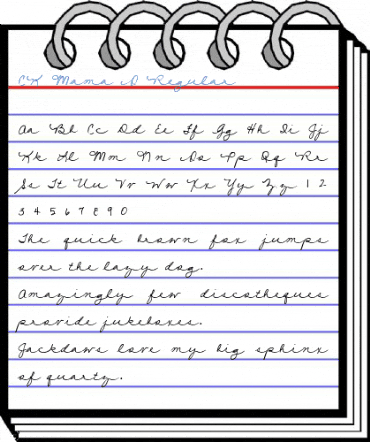 CK Mama D Regular
Aa Bb Cc Dd Ee Ff Gg Hh Ii Jj
Kk Ll Mm Nn Oo Pp Qq Rr
Ss Tt Uu Vv Ww Xx Yy Zz 1 2
3 4 5 6 7 8 9 0
The quick brown fox jumps
over the lazy dog.
Amazingly few discotheques
provide jukeboxes.
Jackdaws love my big sphinx
of quartz.